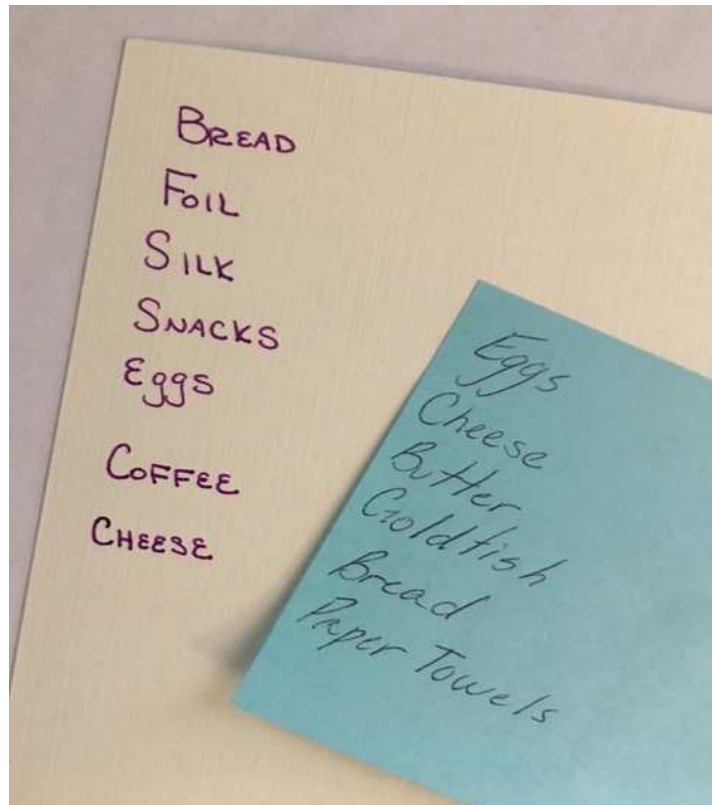 BREAD
FOIL
SILK
SNACKS
Eggs
COFFEE
CHEESE
Eggs
Cheese
Butter
Goldfish
Bread
Paper Towels